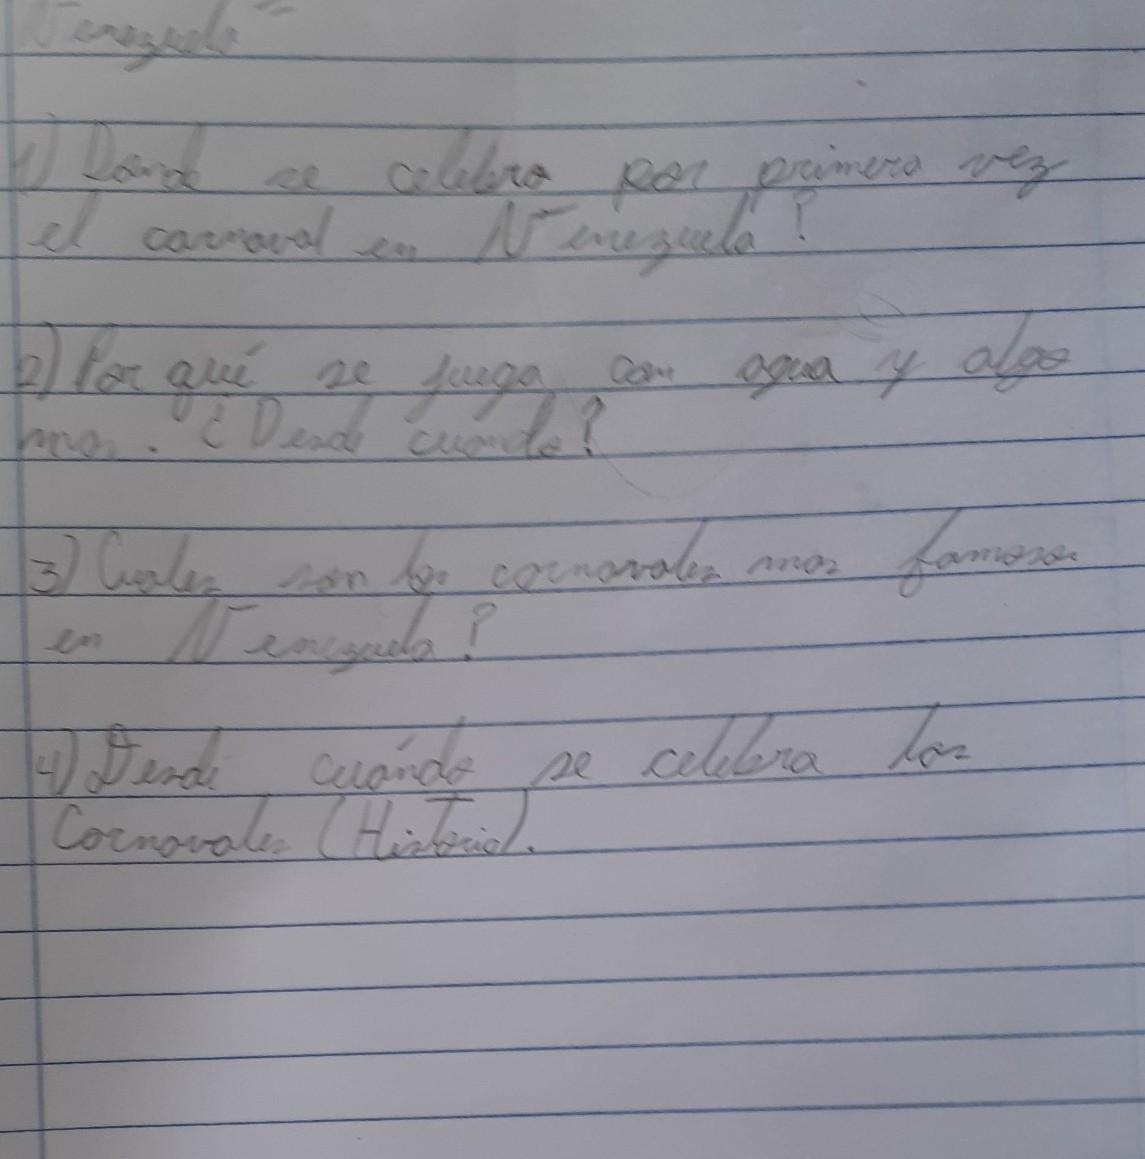 Venezuela
1) Donde se celebra por primera vez
el carnaval en Venezuela?
2) Por qué se juega con agua y algo
mas. ¿Desde cuando?
3) Cuales son los carnavales mas famosos
en Venezuela?
4) Desde cuándo se celebra los
Carnavales (Historia).